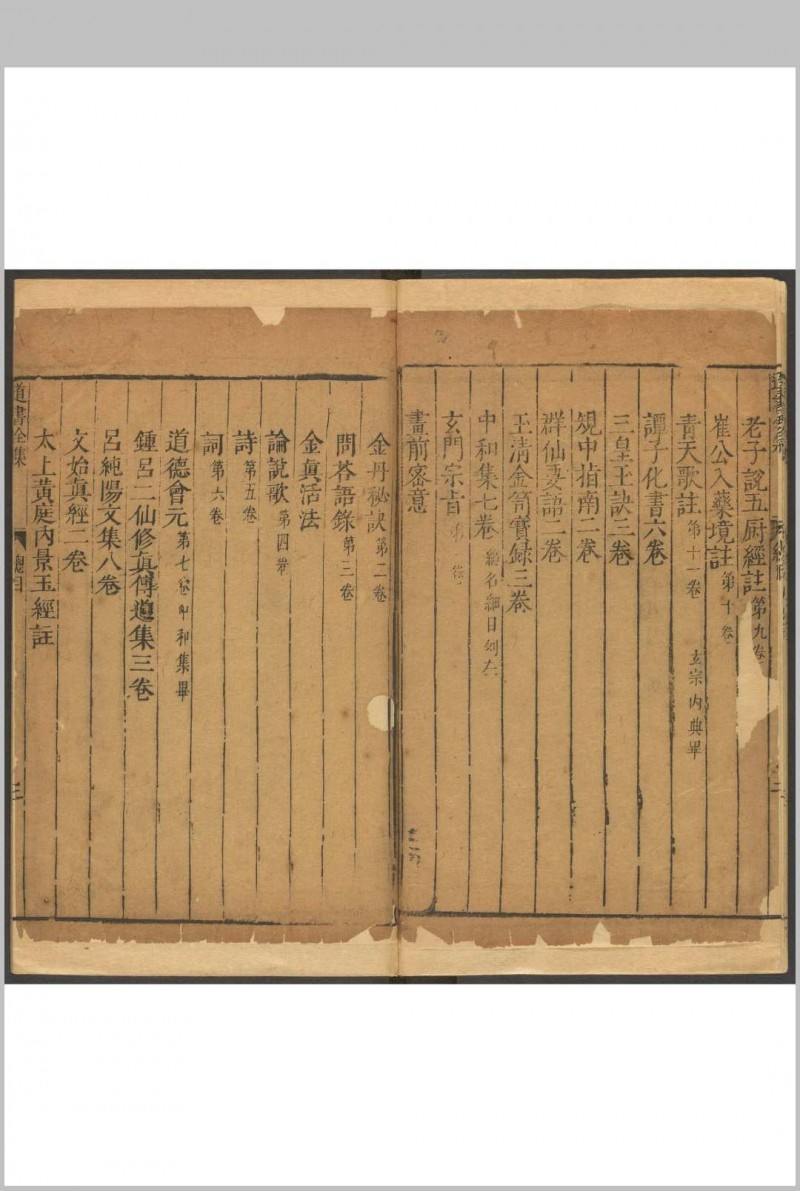 老子說五厨經註 第九卷
崔公入藥境註 第十卷
青天歌註 第十一卷 玄宗内典畢
譚子化書六卷
三皇玉訣三卷
規中指南二卷
群仙要語二卷
玉清金笥寶録三卷
中和集七卷 總名細目列左
玄門宗旨
畫前密意
金丹秘訣 第二卷
問荅語録 第三卷
金眞活法
論說歌 第四卷
詩 第五卷
詞 第六卷
道德會元 第七卷中和集畢
鍾呂二仙修眞傳道集三卷
呂純陽文集八卷
文始眞經二卷
太上黃庭内景玉經註
道書全集 總目 三